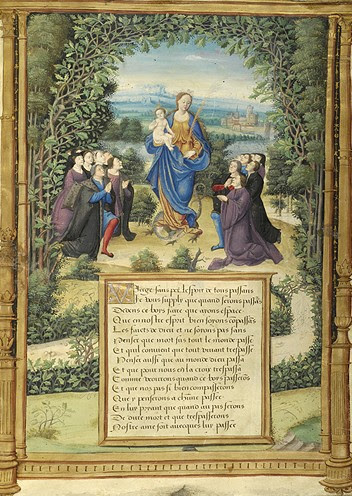 Vierge sans per l'esprit de tous passans
Je vous supply que quand serons passés
Dedens ce bors faire que aions espace
Que en nostre esprit bien soyons compassés
Les faictz de dieu et ne soyons pas sans
Penser que mort sus tout le monde passe
Et qu'il convient que tout vivant trespasse
Penser aussi que au monde dieu passa
Et que pour nous en la croix trespassa
Comme trouverons quand ce bors passerons
Et que nos pas si bien compasserons
Que y penserons a chascune passee
En luy priant que quand au pas serons
De dure mort et que trespasserons
Nostre ame soit avecques luy passee